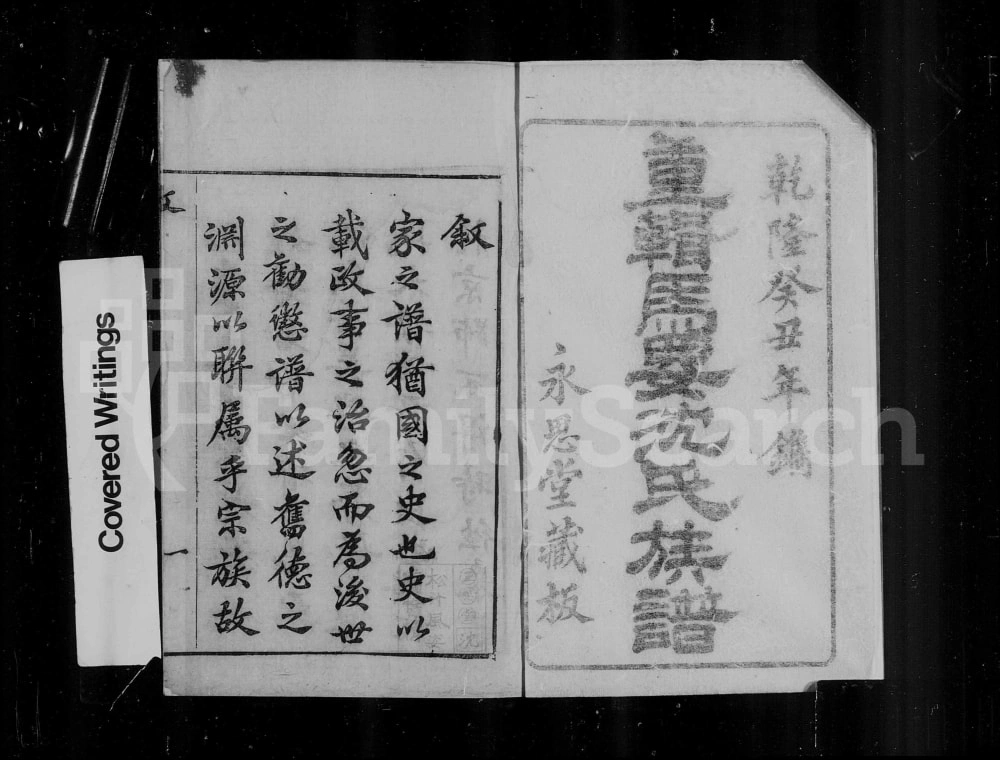 乾隆癸丑年鐫
重輯馬要沈氏族譜
永思堂藏板
敘
家之譜猶國之史也史以
載政事之治忽而為後世
之勸懲譜以述舊德之
淵源以聯屬乎宗族故
一
Covered Writings
FamilySearch